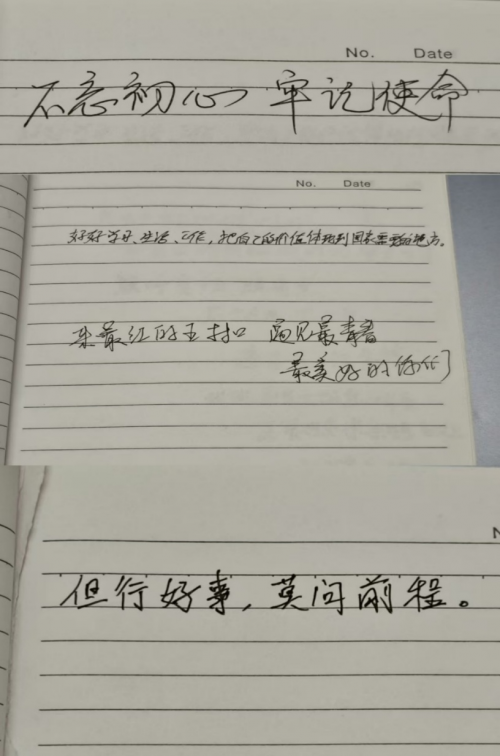 No. Date
不忘初心 牢记使命
No. Date
好好学习、生活、工作，把自己的价值体现到国家需要的地方。
来最红的王村口 遇见最青春
最美好的你们
N
但行好事，莫问前程。